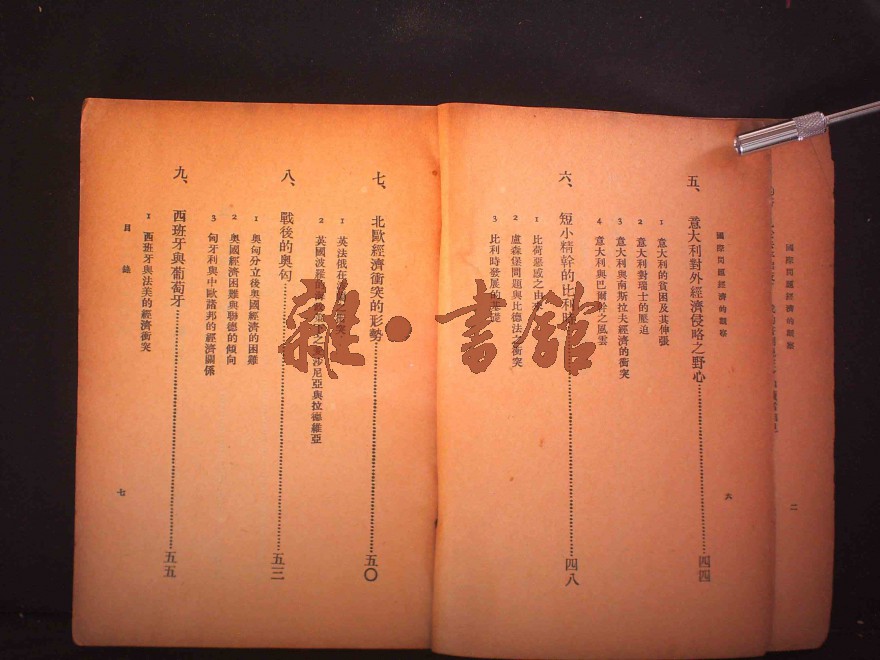 國際問題經濟的觀察
二
國際問題經濟的觀察
六
五、意大利對外經濟侵略之野心……四四
1 意大利的貧困及其伸張
2 意大利對瑞士的壓迫
3 意大利與南斯拉夫經濟的衝突
4 意大利與巴爾幹之風雲
六、短小精幹的比利時……四八
1 比荷惡感之由來
2 盧森堡問題與比德法之衝突
3 比利時發展的基礎
七、北歐經濟衝突的形勢……五〇
1 英法俄在 衝突
2 英國波羅的 莎尼亞與拉德維亞
八、戰後的奧匈……五三
1 奧匈分立後奧國經濟的困難
2 奧國經濟困難與聯德的傾向
3 匈牙利與中歐諸邦的經濟關係
九、西班牙與葡萄牙……五五
1 西班牙與法美的經濟衝突
目錄
七
雜·書館